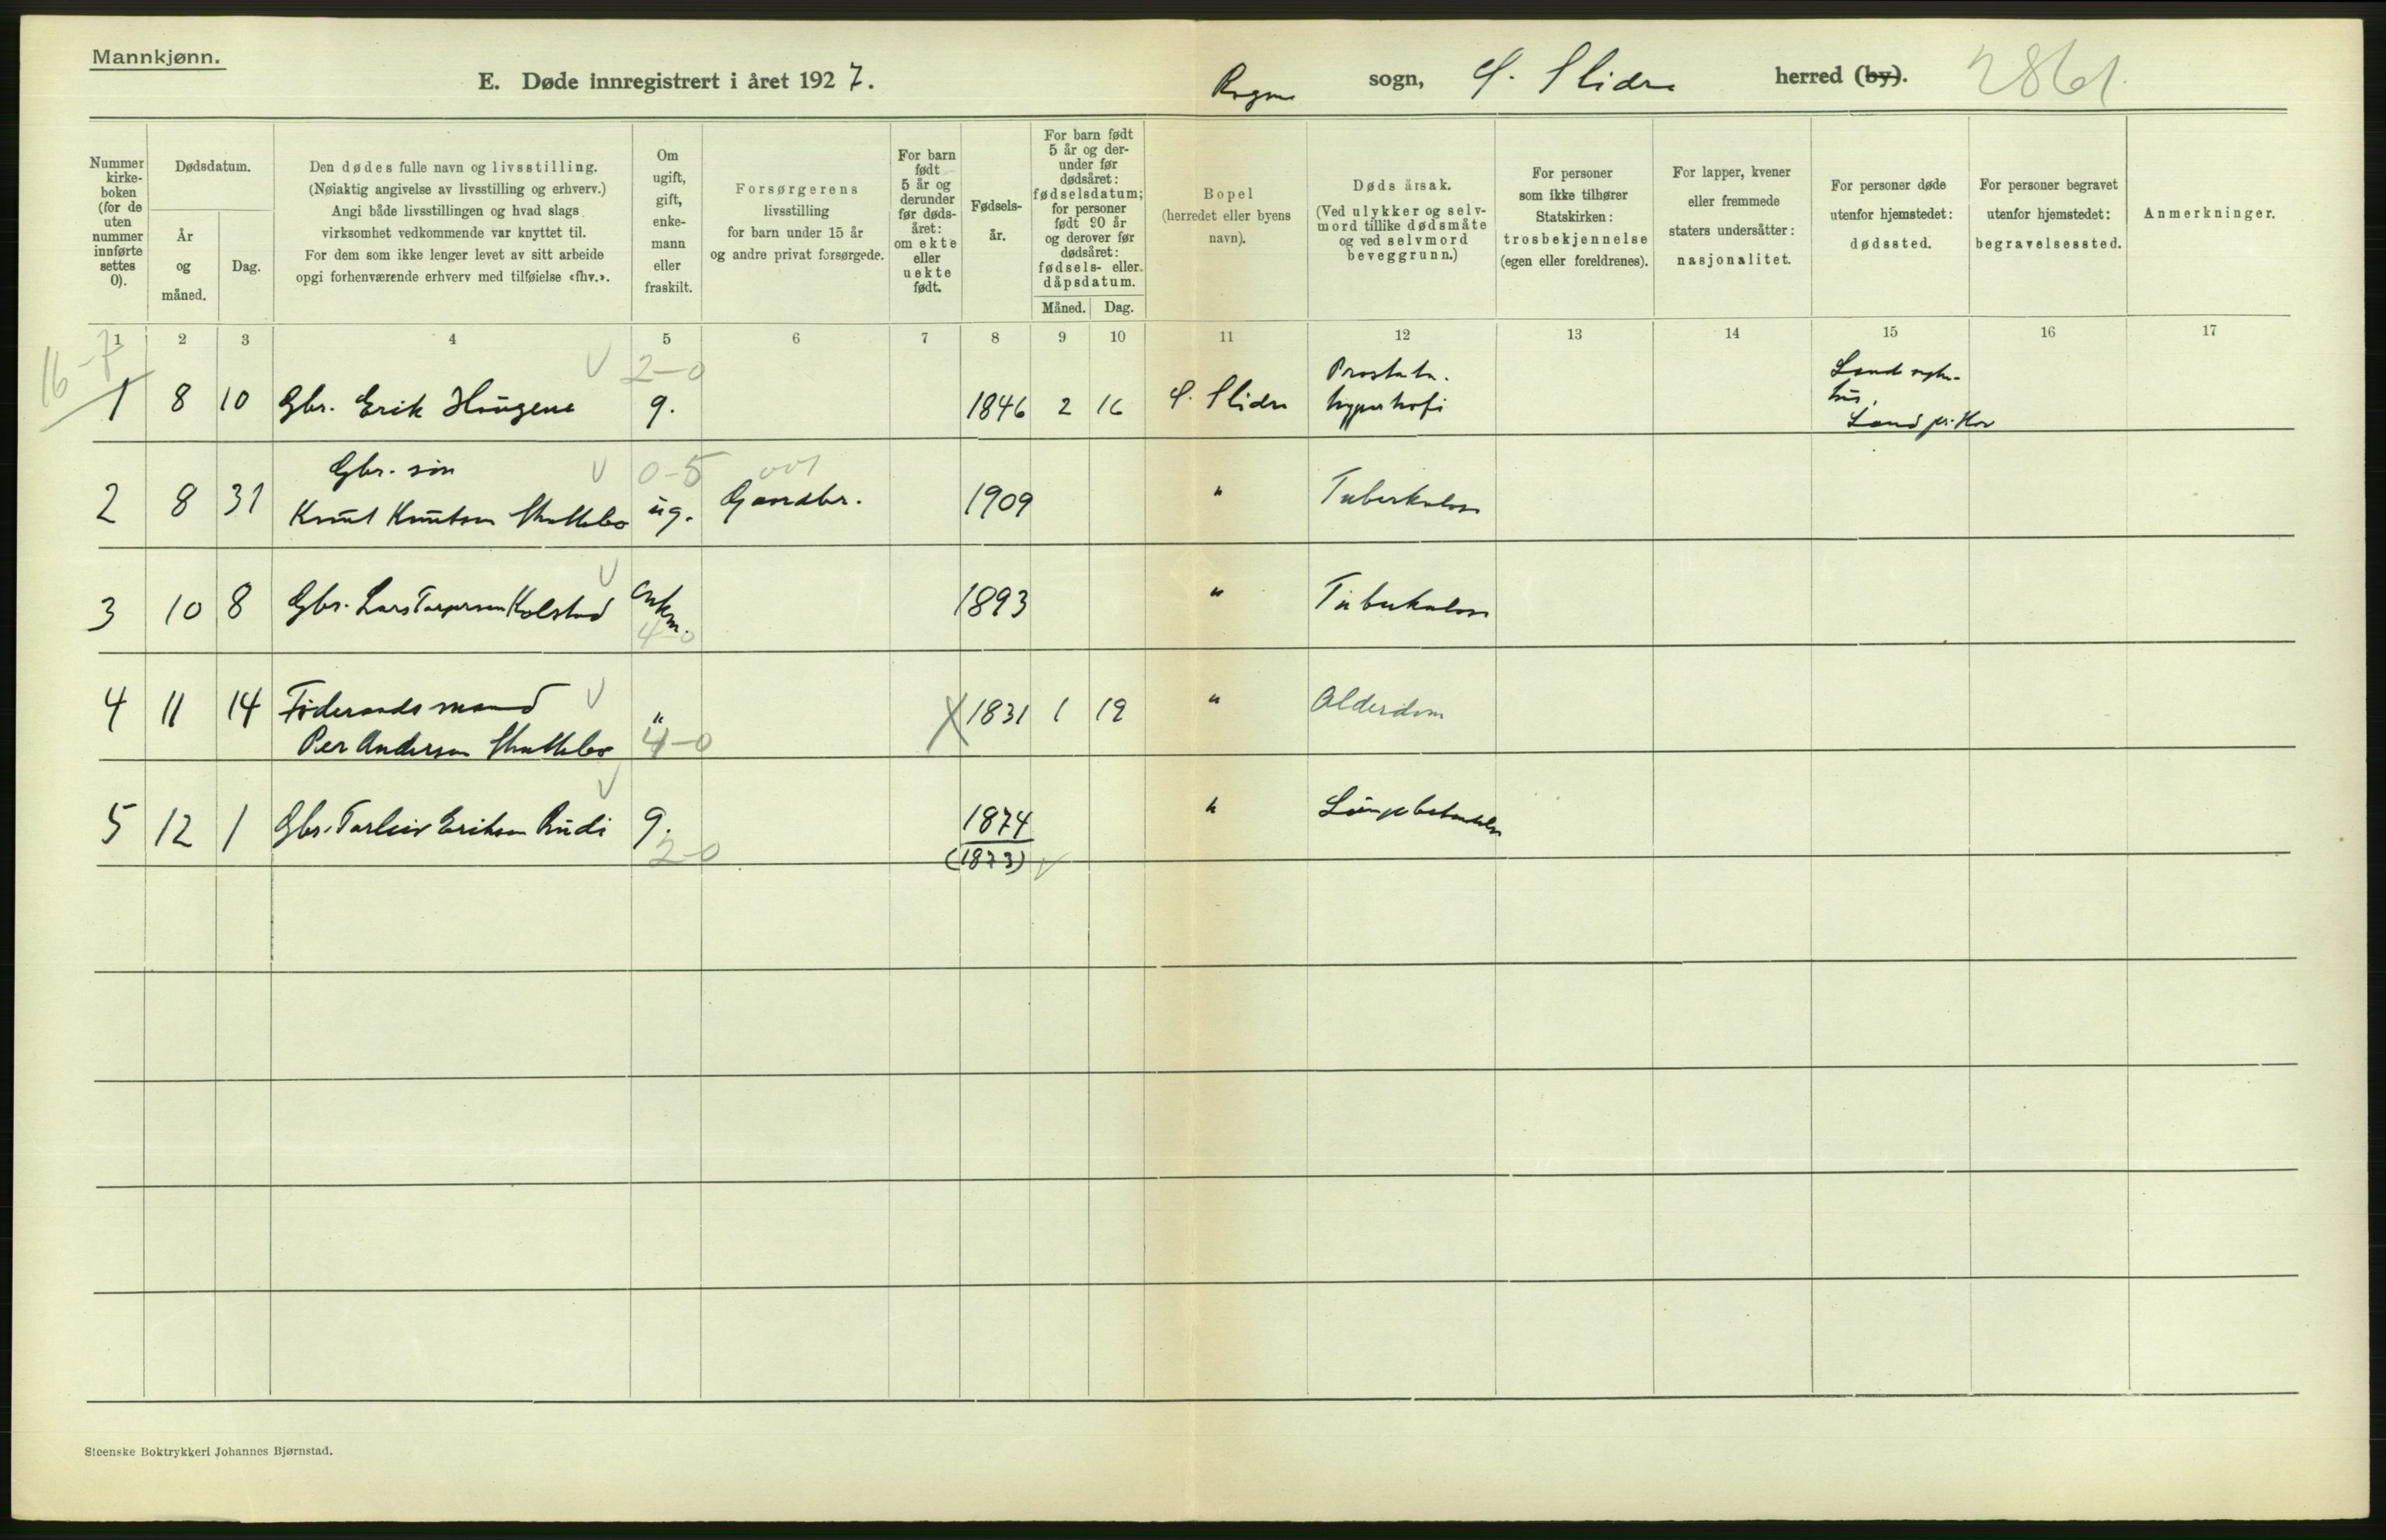 Mannkjønn.
E. Døde innregistrert i året 1927. Rogne sogn, Ø. Slidre herred (by). 2861.
Nummer kirke-boken (for de uten nummer innførte settes 0).
Dødsdatum.
År og måned.
Dag.
Den dødes fulle navn og livsstilling.
(Nøiaktig angivelse av livsstilling og erhverv.)
Angi både livsstillingen og hvad slags
virksomhet vedkommende var knyttet til.
For dem som ikke lenger levet av sitt arbeide
opgi forhenværende erhverv med tilføielse «fhv.».
Om ugift, gift, enke-mann eller fraskilt.
Forsørgerens
livsstilling
for barn under 15 år
og andre privat forsørgede.
For barn født 5 år og derunder før døds-året: om ekte eller uekte født.
Fødsels-år.
For barn født 5 år og der-under før dødsåret: fødselsdatum; for personer født 90 år og derover før dødsåret: fødsels- eller dåpsdatum.
Måned. Dag.
Bopel
(herredet eller byens
navn).
Dødsårsak.
(Ved ulykker og selv-
mord tillike dødsmåte
og ved selvmord
beveggrunn.)
For personer
som ikke tilhører
Statskirken:
trosbekjennelse
(egen eller foreldrenes).
For lapper, kvener
eller fremmede
staters undersåtter:
nasjonalitet.
For personer døde
utenfor hjemstedet:
dødssted.
For personer begravet
utenfor hjemstedet:
begravelsessted.
Anmerkninger.
1 2 3 4 5 6 7 8 9 10 11 12 13 14 15 16 17
16-7
2-0
1 8 10 Gbr. Erik Haugene g. 1846 2 16 Ø. Slidre Prostata. hypertrofi Land syke-hus, Land pr. Hov
0-5
2 8 31 Gbr. søn Knut Knutsen g. ug. Gaardbr. 1909 " Tuberkulose
3 10 8 Gbr. Lars Kolstad enkm. 1893 " Tuberkulose
4-0
4 11 14 Føderaadsmand Per Andersen " X 1831 1 19 " Alderdom
4-0
5 12 1 Gbr. Torleiv Eriksen Rudi g. 1874 " Lungebetendelse
2-0 (1873)
Steenske Boktrykkeri Johannes Bjørnstad.